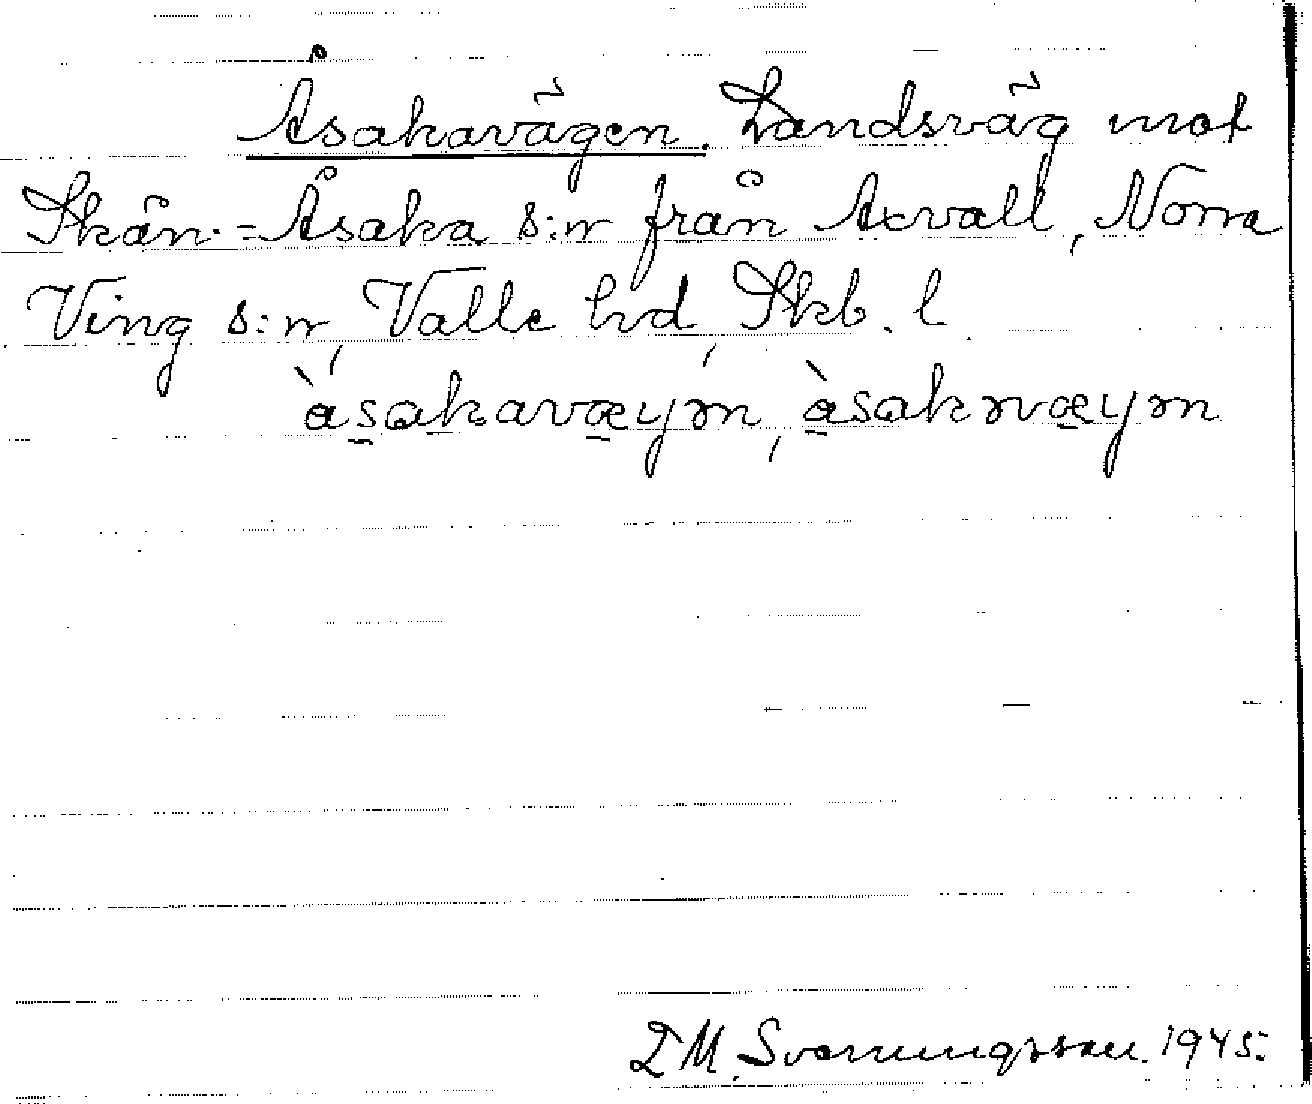 Åsakavägen. Landsväg mot
Skån-Åsaka s:n från Axvall, Norra
Ving s:n, Valle hd, Skb. l.
àsakavæyən, àsakəvæyən
M. Svenningsson. 1945.